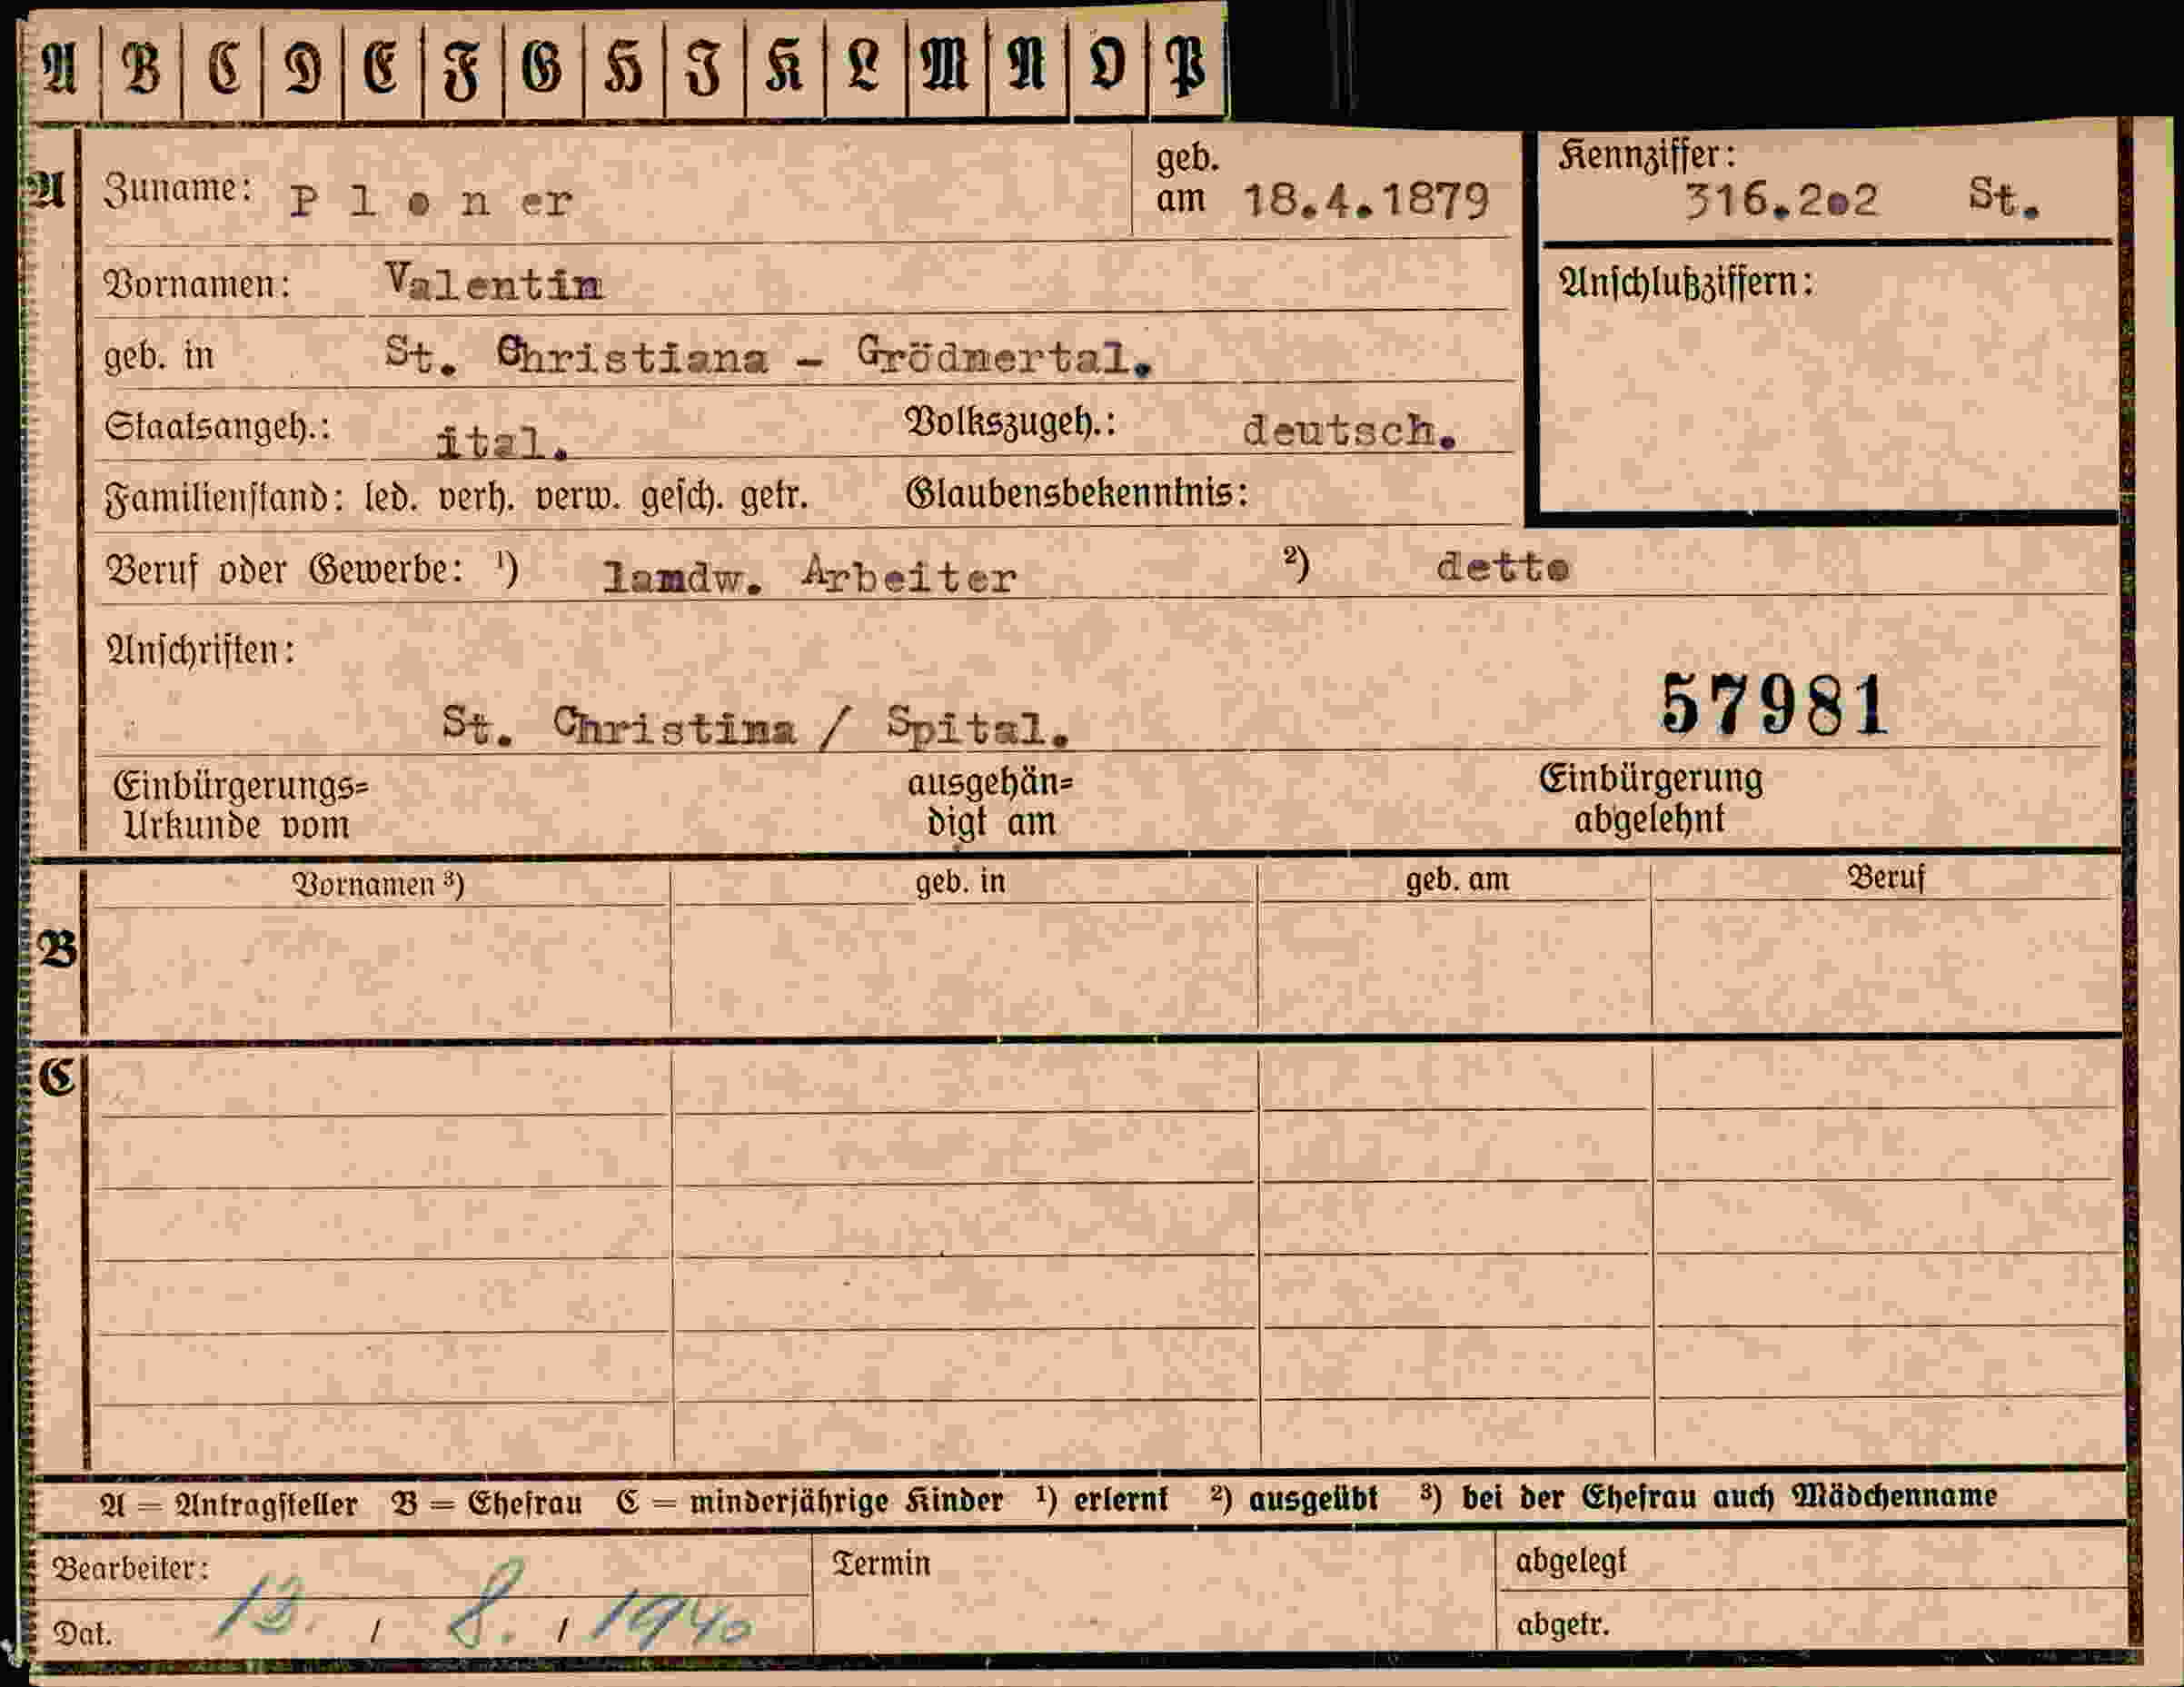 A B C D E F G H I K L M N O P
A Zuname: P l o n er geb. am 18.4.1879 Kennziffer: 316.2o2 St.
Vornamen: Valentin Anschlußziffern:
geb. in St. Christiana - Grödnertal.
Staatsangeh.: ital. Volkszugeh.: deutsch.
Familienstand: led. verh. verw. gesch. getr. Glaubensbekenntnis:
Beruf oder Gewerbe: ¹) landw. Arbeiter ²) detto
Anschriften:
57981
St. Christina / Spital.
Einbürgerungs= ausgehän= Einbürgerung
Urkunde vom digt am abgelehnt
Vornamen ³) geb. in geb. am Beruf
B
C
A = Antragsteller B = Ehefrau C = minderjährige Kinder ¹) erlernt ²) ausgeübt ³) bei der Ehefrau auch Mädchenname
Bearbeiter: Termin abgelegt
Dat. 13. / 8. / 1940 abgetr.